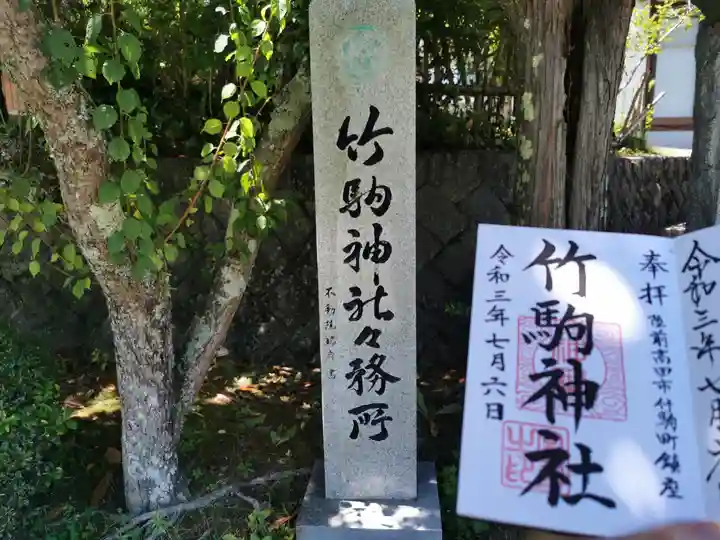 竹駒神社々務所
奉拝
陸前高田市竹駒町鎮座
竹駒神社
令和三年七月六日
令和三年七月